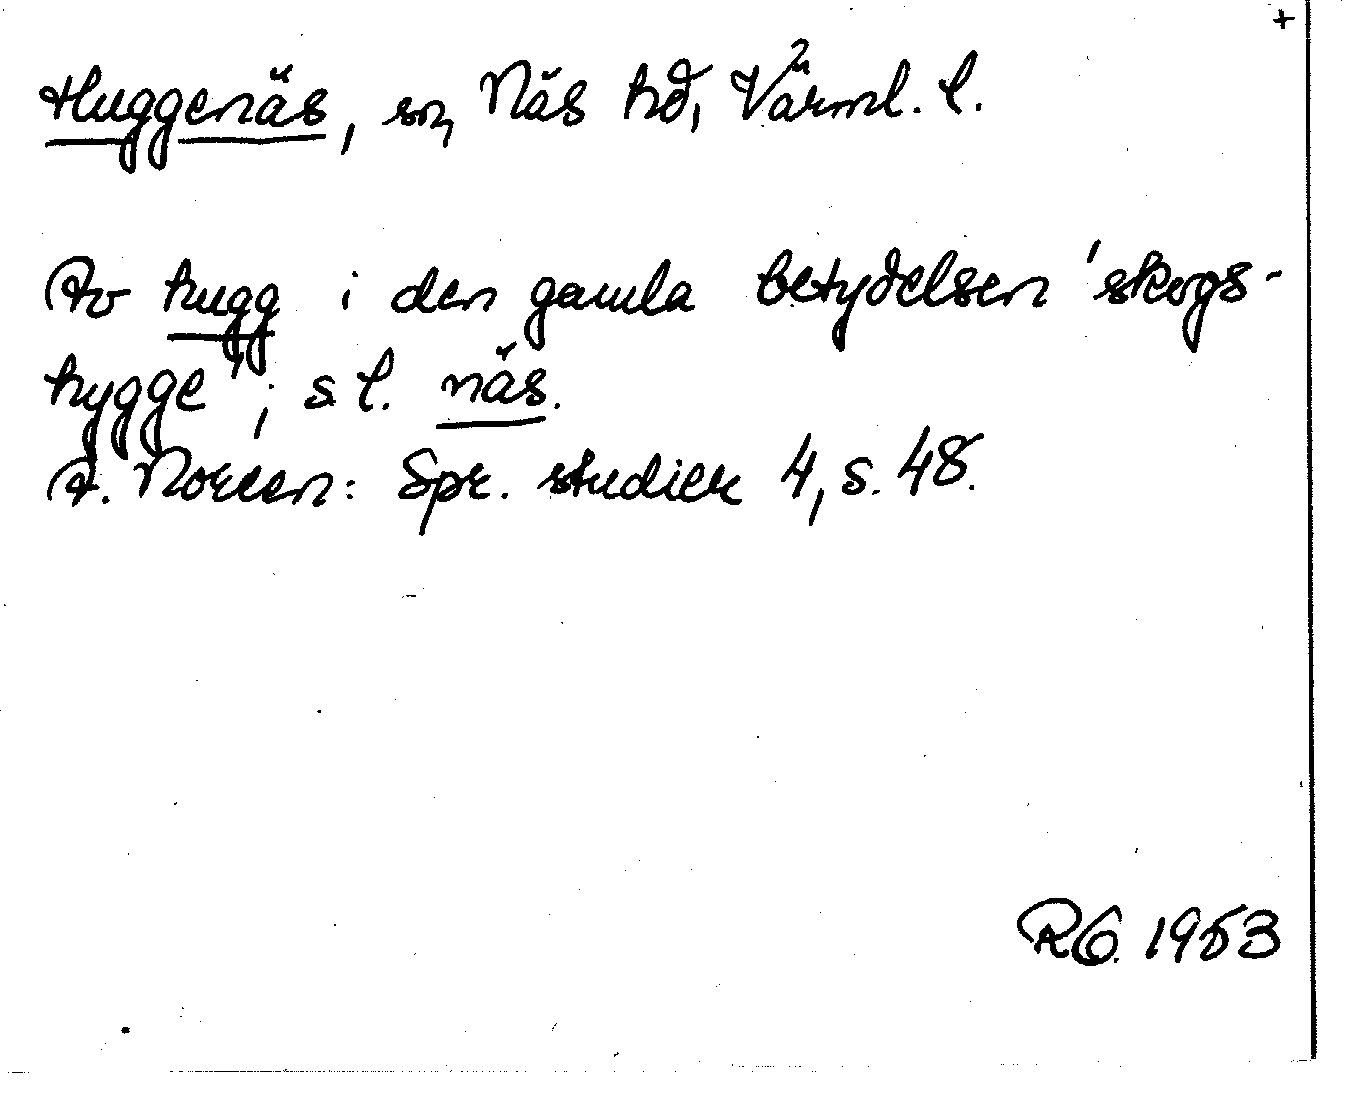 +
Huggenäs, sn, Näs hd, Värml. l.
Av hugg i den gamla betydelsen 'skogs-
hygge'; s. l. näs.
A. Noreen: Spr. studier 4, s. 48.
RG. 1953